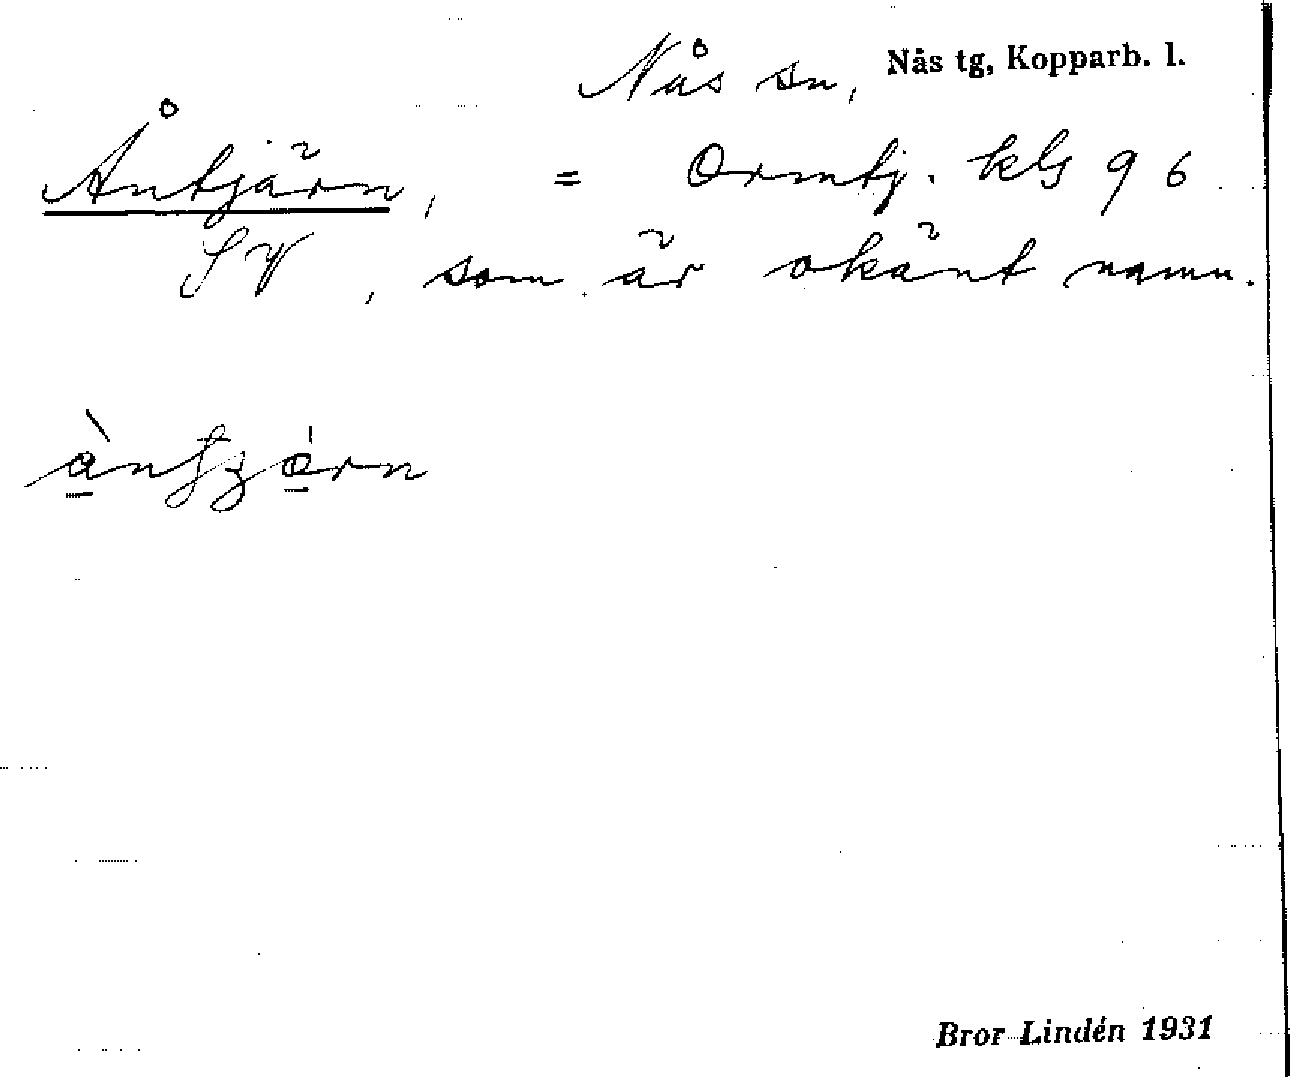 Nås sn, Nås tg, Kopparb. l.
Åntjärn, = Ormtj. kbl 96
SV, som är okänt namn.
Bror Lindén 1931